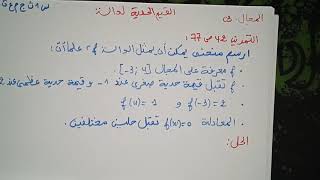 المجال: 03
القيم الحدية لدالة:
التمرين 42 ص 77:
ارسم منحنى يمكن أن يمثل الدالة f علما أن:
f معرفة على المجال [-3; 4]
f تقبل قيمة حدية صغرى عند 1- و قيمة حدية عظمى عند 2
f(-3) = 2 و f(4) = 1
المعادلة f(x)=0 تقبل حلين مختلفين.
الحل: